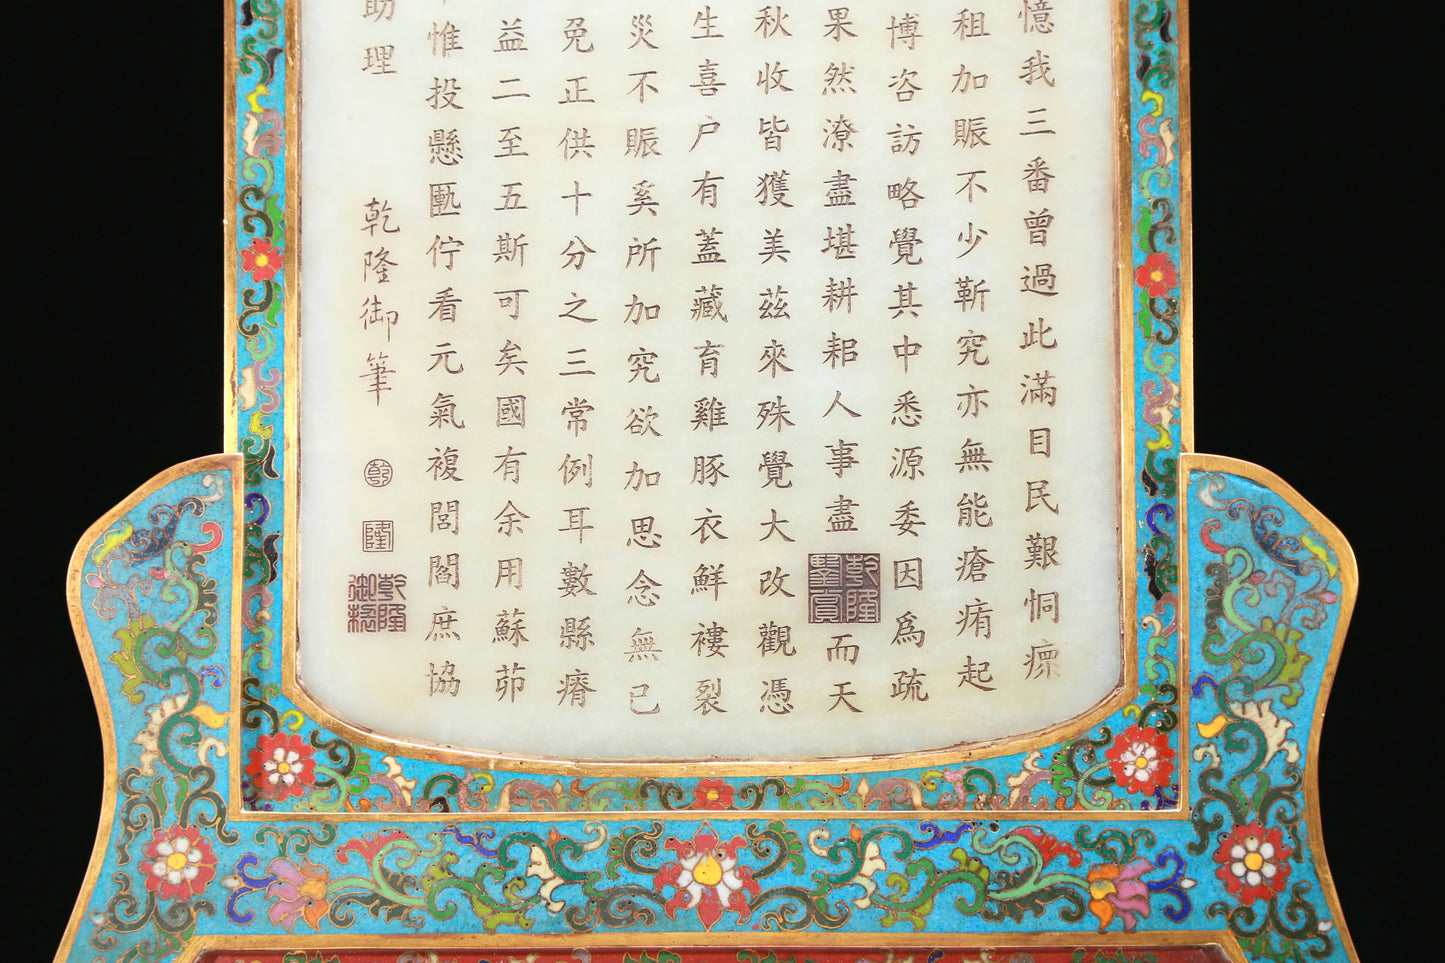 憶我三番曾過此滿目民艱恫瘝
租加賑不少靳究亦無能瘡痏起
博咨訪略覺其中悉源委因爲疏
果然潦盡堪耕耜人事盡而天
秋收皆獲美茲來殊覺大改觀憑
生喜户有蓋藏育雞豚衣鮮褸裂
災不賑奚所加究欲加思念無已
免正供十分之三常例耳數縣瘠
益二至五斯可矣國有余用蘇茆
惟投懸匭佇看元氣複閭閻庶協
助理
乾隆御筆
乾
隆
乾隆御覽
乾隆鑒賞